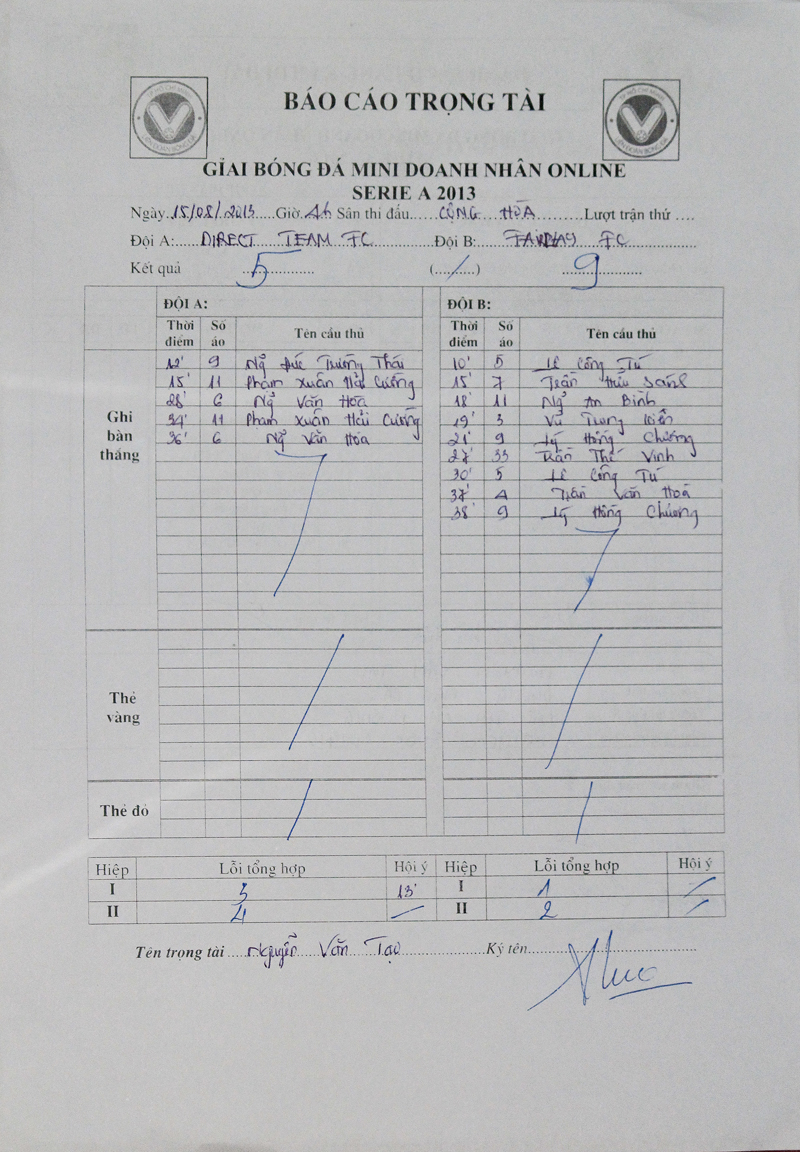 TP HỒ CHÍ MINH
LIÊN ĐOÀN BÓNG ĐÁ
BÁO CÁO TRỌNG TÀI
GIẢI BÓNG ĐÁ MINI DOANH NHÂN ONLINE
SERIE A 2013
Ngày 15/08/2013 Giờ Sân thi đấu CỘNG HÒA Lượt trận thứ ....
Đội A: DIRECT TEAM FC Đội B: FC
Kết quả 5 (.../...) 9
ĐỘI A: ĐỘI B:
Thời điểm Số áo Tên cầu thủ Thời điểm Số áo Tên cầu thủ
Ghi bàn thắng
12' 9 Ng Đức Trường Thái 10' 5 Lê Công Tú
15' 11 Phạm Xuân Hải Cường 15' 7 Trần Hữu
28' 6 Ng Văn Hóa 18' 11 Ng An Bình
34' 11 Phạm Xuân Hải Cường 19' 3 Vũ Trung Kiên
36' 6 Ng Văn Hóa 21' 9 Lý Hồng Chương
27' 33 Trần Thế Vinh
30' 5 Lê Công Tú
37' 4 Trần Văn Hoá
38' 9 Lý Hồng Chương
Thẻ vàng
Thẻ đỏ
Hiệp Lỗi tổng hợp Hội ý Hiệp Lỗi tổng hợp Hội ý
I 3 13' I 1
II 4 II 2
Tên trọng tài Nguyễn Văn Tạo Ký tên